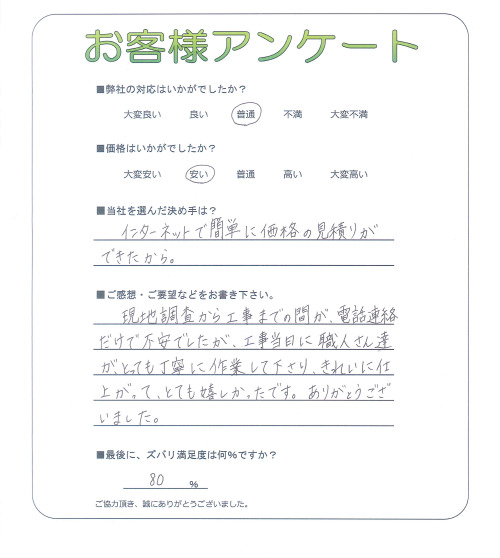 お客様アンケート
■弊社の対応はいかがでしたか？
大変良い 良い 普通 不満 大変不満
■価格はいかがでしたか？
大変安い 安い 普通 高い 大変高い
■当社を選んだ決め手は？
インターネットで簡単に価格の見積りが
できたから。
■ご感想・ご要望などをお書き下さい。
現地調査から工事までの間が、電話連絡
だけで不安でしたが、工事当日に職人さん達
が、とっても丁寧に作業して下さり、きれいに仕
上がって、とても嬉しかったです。ありがとうござ
いました。
■最後に、ズバリ満足度は何％ですか？
80 ％
ご協力頂き、誠にありがとうございました。